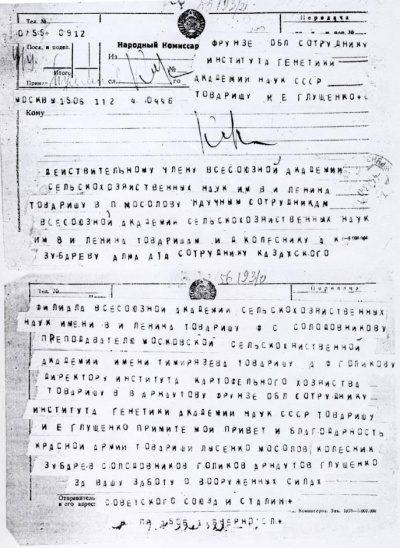 Передача
0755 0912
Народный Комиссар
Из
№
Прин.
сл.
го
ФРУНЗЕ ОБЛ СОТРУДНИКУ
ИНСТИТУТА ГЕНЕТИКИ
АКАДЕМИИ НАУК СССР
ТОВАРИЩУ И Е ГЛУЩЕНКО +
МОСКВЫ 1506 112 4 0446
Кому
ДЕЙСТВИТЕЛЬНОМУ ЧЛЕНУ ВСЕСОЮЗНОЙ АКАДЕМИИ
СЕЛЬСКОХОЗЯЙСТВЕННЫХ НАУК ИМ В И ЛЕНИНА
ТОВАРИЩУ В П МОСОЛОВУ НАУЧНЫМ СОТРУДНИКАМ
ВСЕСОЮЗНОЙ АКАДЕМИИ СЕЛЬСКОХОЗЯЙСТВЕННЫХ НАУК
ИМ В И ЛЕНИНА ТОВАРИЩАМ И Д КОЛЕСНИКУ А К
ЗУБАРЕВУ АЛМА АТА СОТРУДНИКУ КАЗАХСКОГО
56 193/0
Тел. №
Передача
ФИЛИАЛА ВСЕСОЮЗНОЙ АКАДЕМИИ СЕЛЬСКОХОЗЯЙСТВЕННЫХ
НАУК ИМЕНИ В И ЛЕНИНА ТОВАРИЩУ Ф С СОЛОДОВНИКОВУ
ПРЕПОДАВАТЕЛЮ МОСКОВСКОЙ СЕЛЬСКОХЯЙСТВЕННОЙ
АКАДЕМИИ ИМЕНИ ТИМИРЯЗЕВА ТОВАРИЩУ А Ф ГОЛИКОВУ
ДИРЕКТОРУ ИНСТИТУТА КАРТОФЕЛЬНОГО ХОЗЯЙСТВА
ТОВАРИЩУ В В АРНАУТОВУ ФРУНЗЕ ОБЛ СОТРУДНИКУ
ИНСТИТУТА ГЕНЕТИКИ АКАДЕМИИ НАУК СССР ТОВАРИЩУ
И Е ГЛУЩЕНКО ПРИМИТЕ МОЙ ПРИВЕТ И БЛАГОДАРНОСТЬ
КРАСНОЙ АРМИИ ТОВАРИЩИ ЛЫСЕНКО МОСОЛОВ КОЛЕСНИК
ЗУБАРЕВ СОЛОДОВНИКОВ ГОЛИКОВ АРНАУТОВ ГЛУЩЕНКО
ЗА ВАШУ ЗАБОТУ О ВООРУЖЕННЫХ СИЛАХ
Отправитель
и его адрес:
СОВЕТСКОГО СОЮЗА И СТАЛИН +